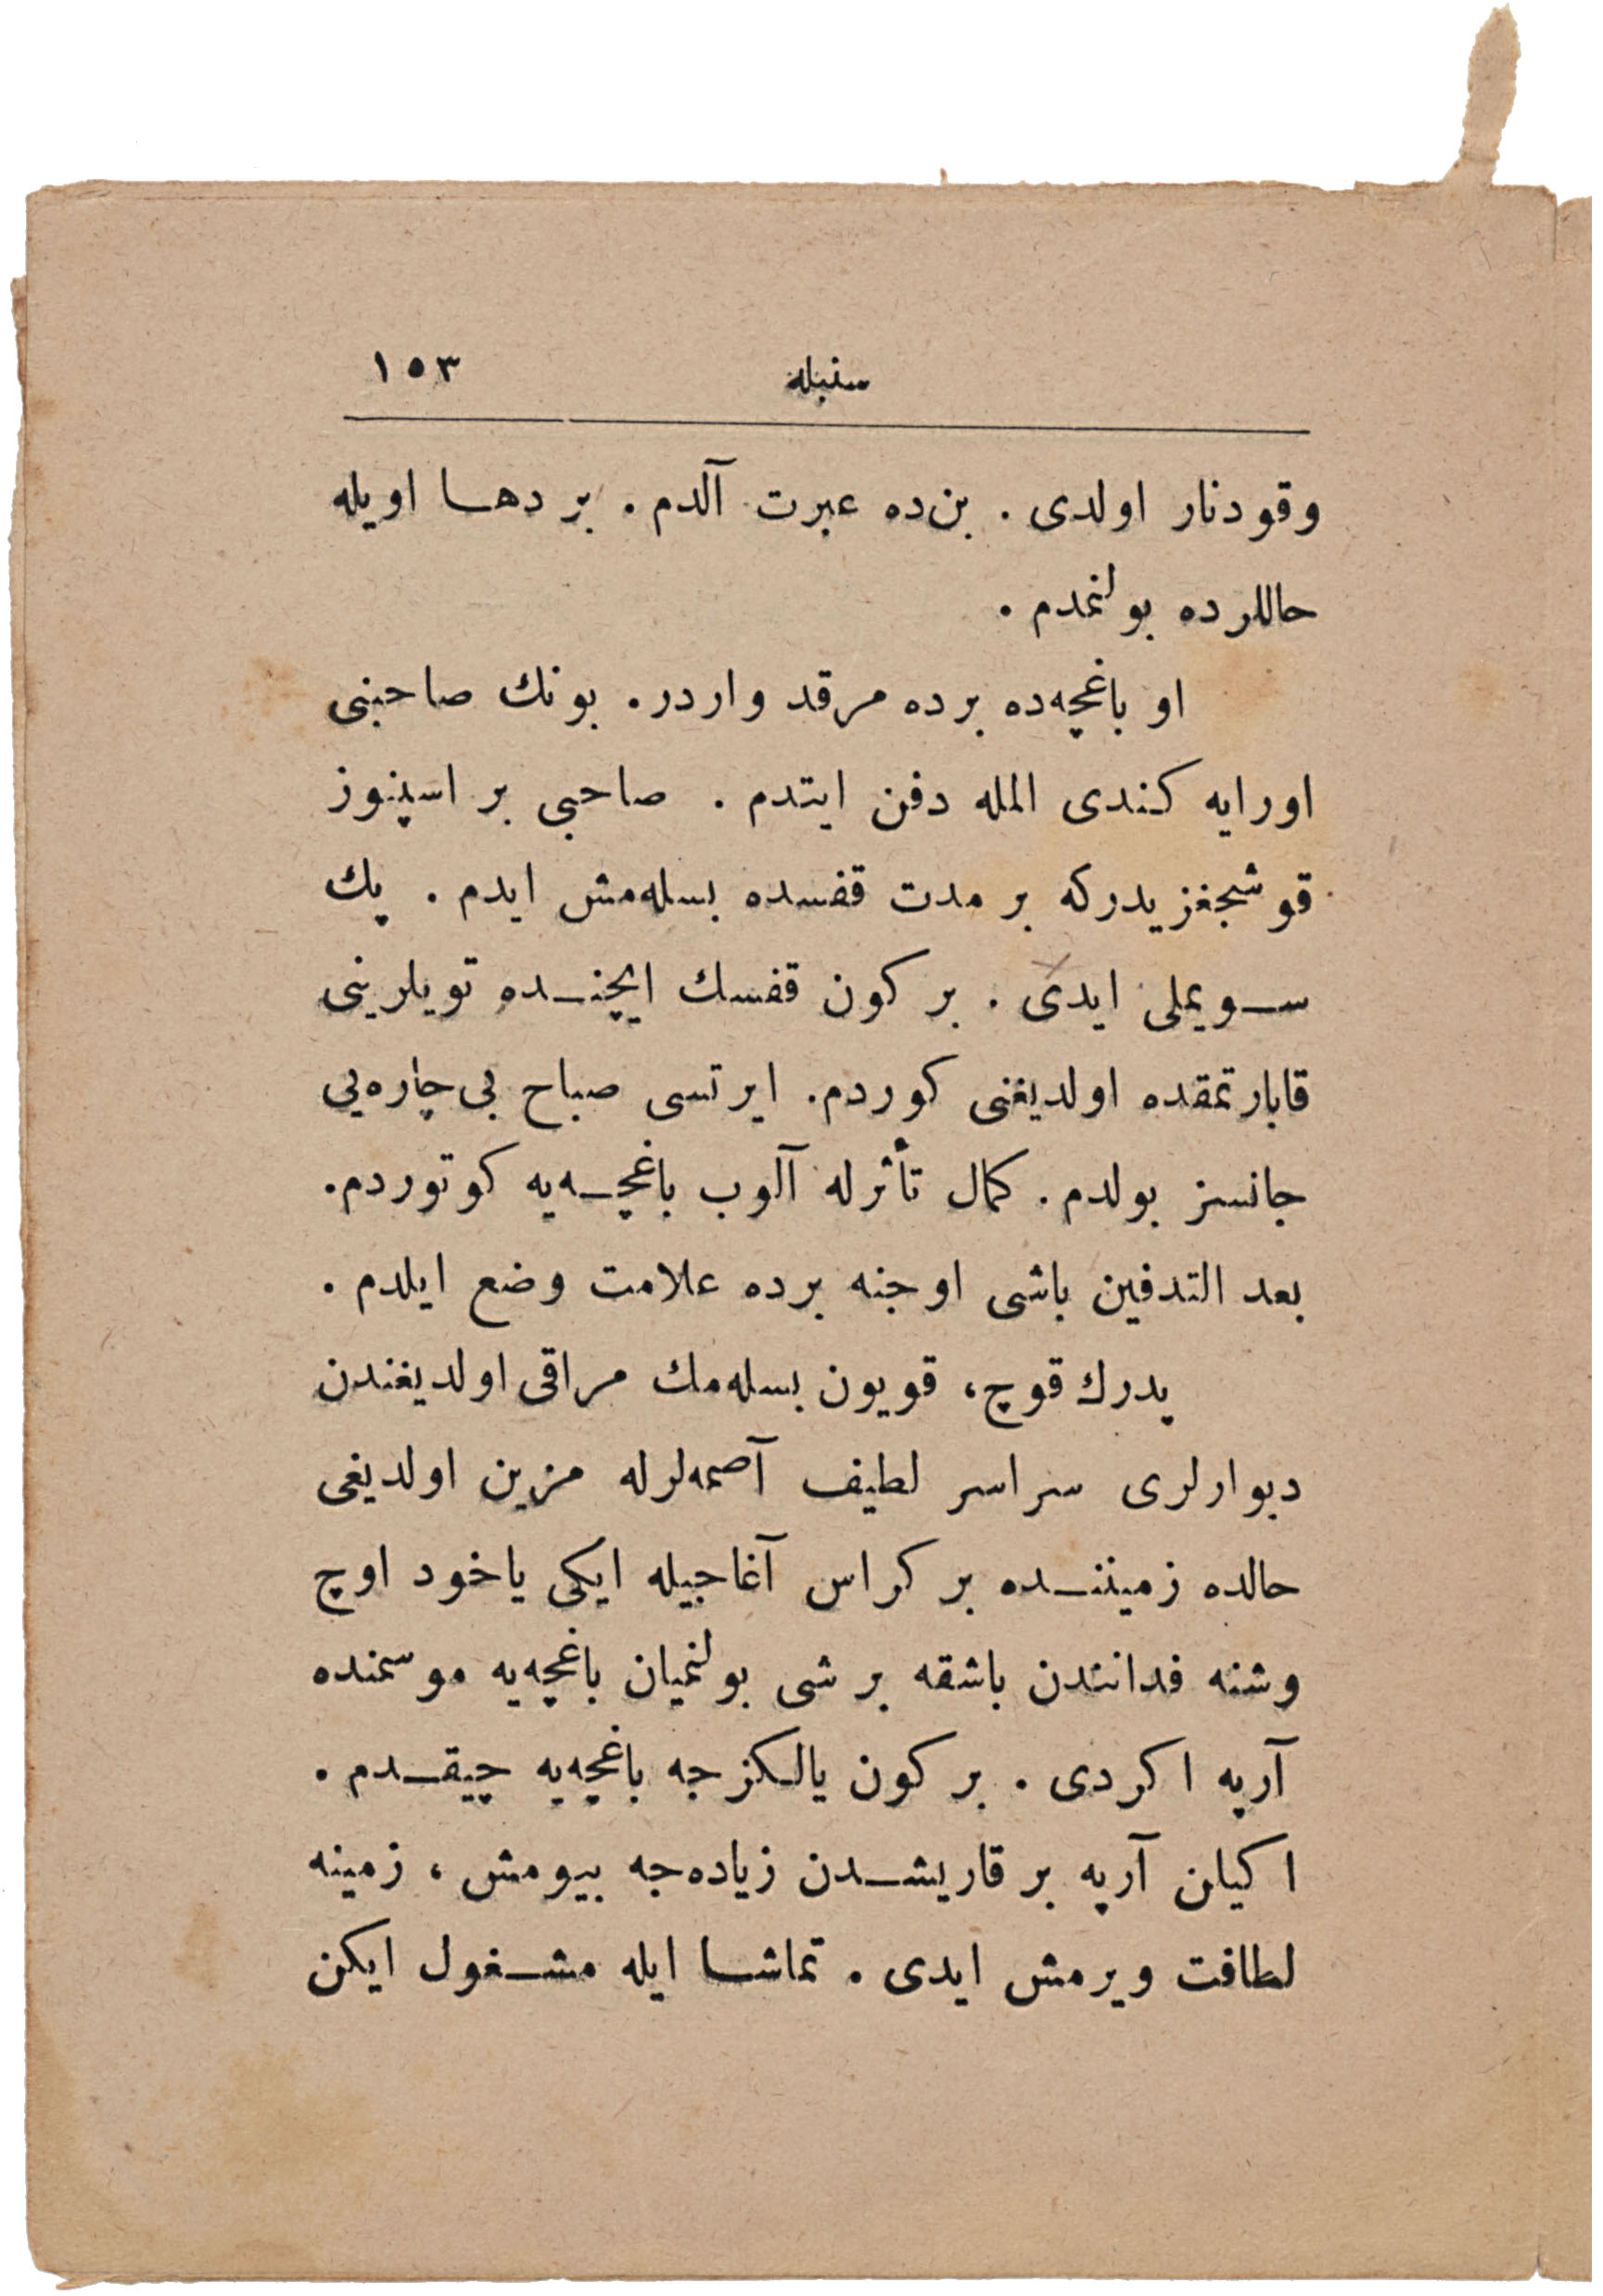 سنبله ١٥٣
وقودنار اولدى . بن‌ده عبرت آلدم . بر دها اويله
حاللرده بولنمدم .
او باغچه‌ده برده مرقد واردر . بونك صاحبنى
اورايه كندى المله دفن ايتدم . صاحبى بر اسپنوز
قوشجغزيدركه بر مدت قفسده بسله‌مش ايدم . پك
سويملى ايدى . بر كون قفسك ايچنده تويلرينى
قابارتمقده اولديغنى كوردم . ايرتسى صباح بى‌چاره‌يى
جانسز بولدم . كمال تأثرله آلوب باغچه‌يه كوتوردم .
بعد التدفين باشى اوجنه برده علامت وضع ايلدم .
پدرك قوچ ، قويون بسله‌مك مراقى اولديغندن
ديوارلرى سراسر لطيف آصمه‌لرله مزين اولديغى
حالده زميننده بر كراس آغاجيله ايكى ياخود اوچ
وشنه فداننندن باشقه بر شى بولنميان باغچه‌يه موسمنده
آرپه اكردى . بر كون يالكزجه باغچه‌يه چيقدم .
اكيلن آرپه بر قاريشدن زياده‌جه بيومش ، زمينه
لطافت ويرمش ايدى . تماشا ايله مشغول ايكن